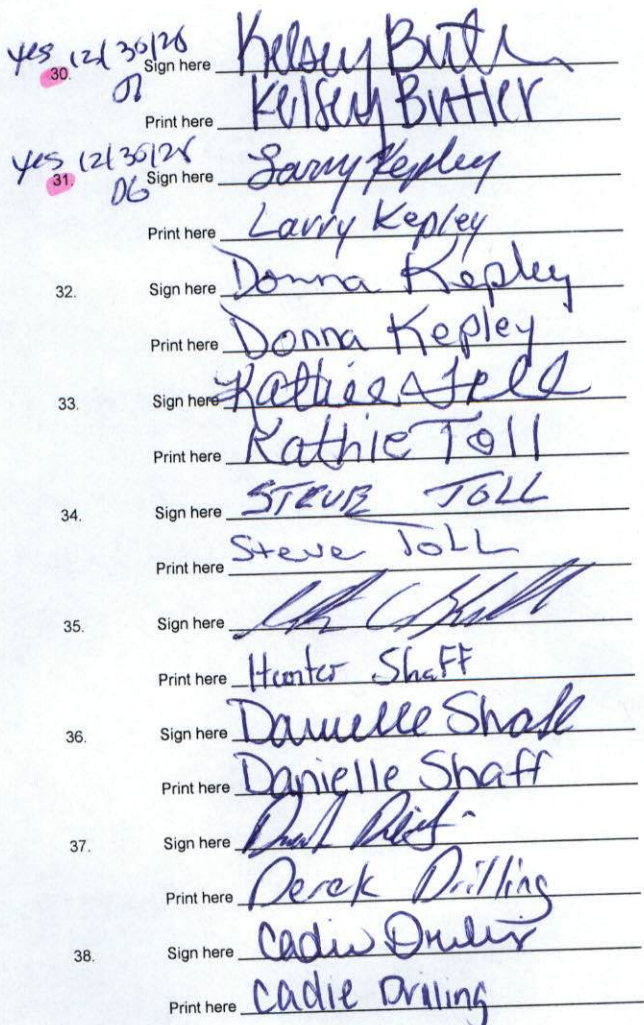 yes 12/30/25
30. Sign here Kelsey Butler
Print here Kelsey Butler
yes 12/30/25
31. DG Sign here Larry Kepley
Print here Larry Kepley
32. Sign here Donna Kepley
Print here Donna Kepley
33. Sign here Kathie Toll
Print here Kathie Toll
34. Sign here STEVE TOLL
Print here Steve ToLL
35. Sign here
Print here Hunter Shaff
36. Sign here Danielle Shaff
Print here Danielle Shaff
37. Sign here
Print here Derek Drilling
38. Sign here Cadie Drilling
Print here Cadie Drilling